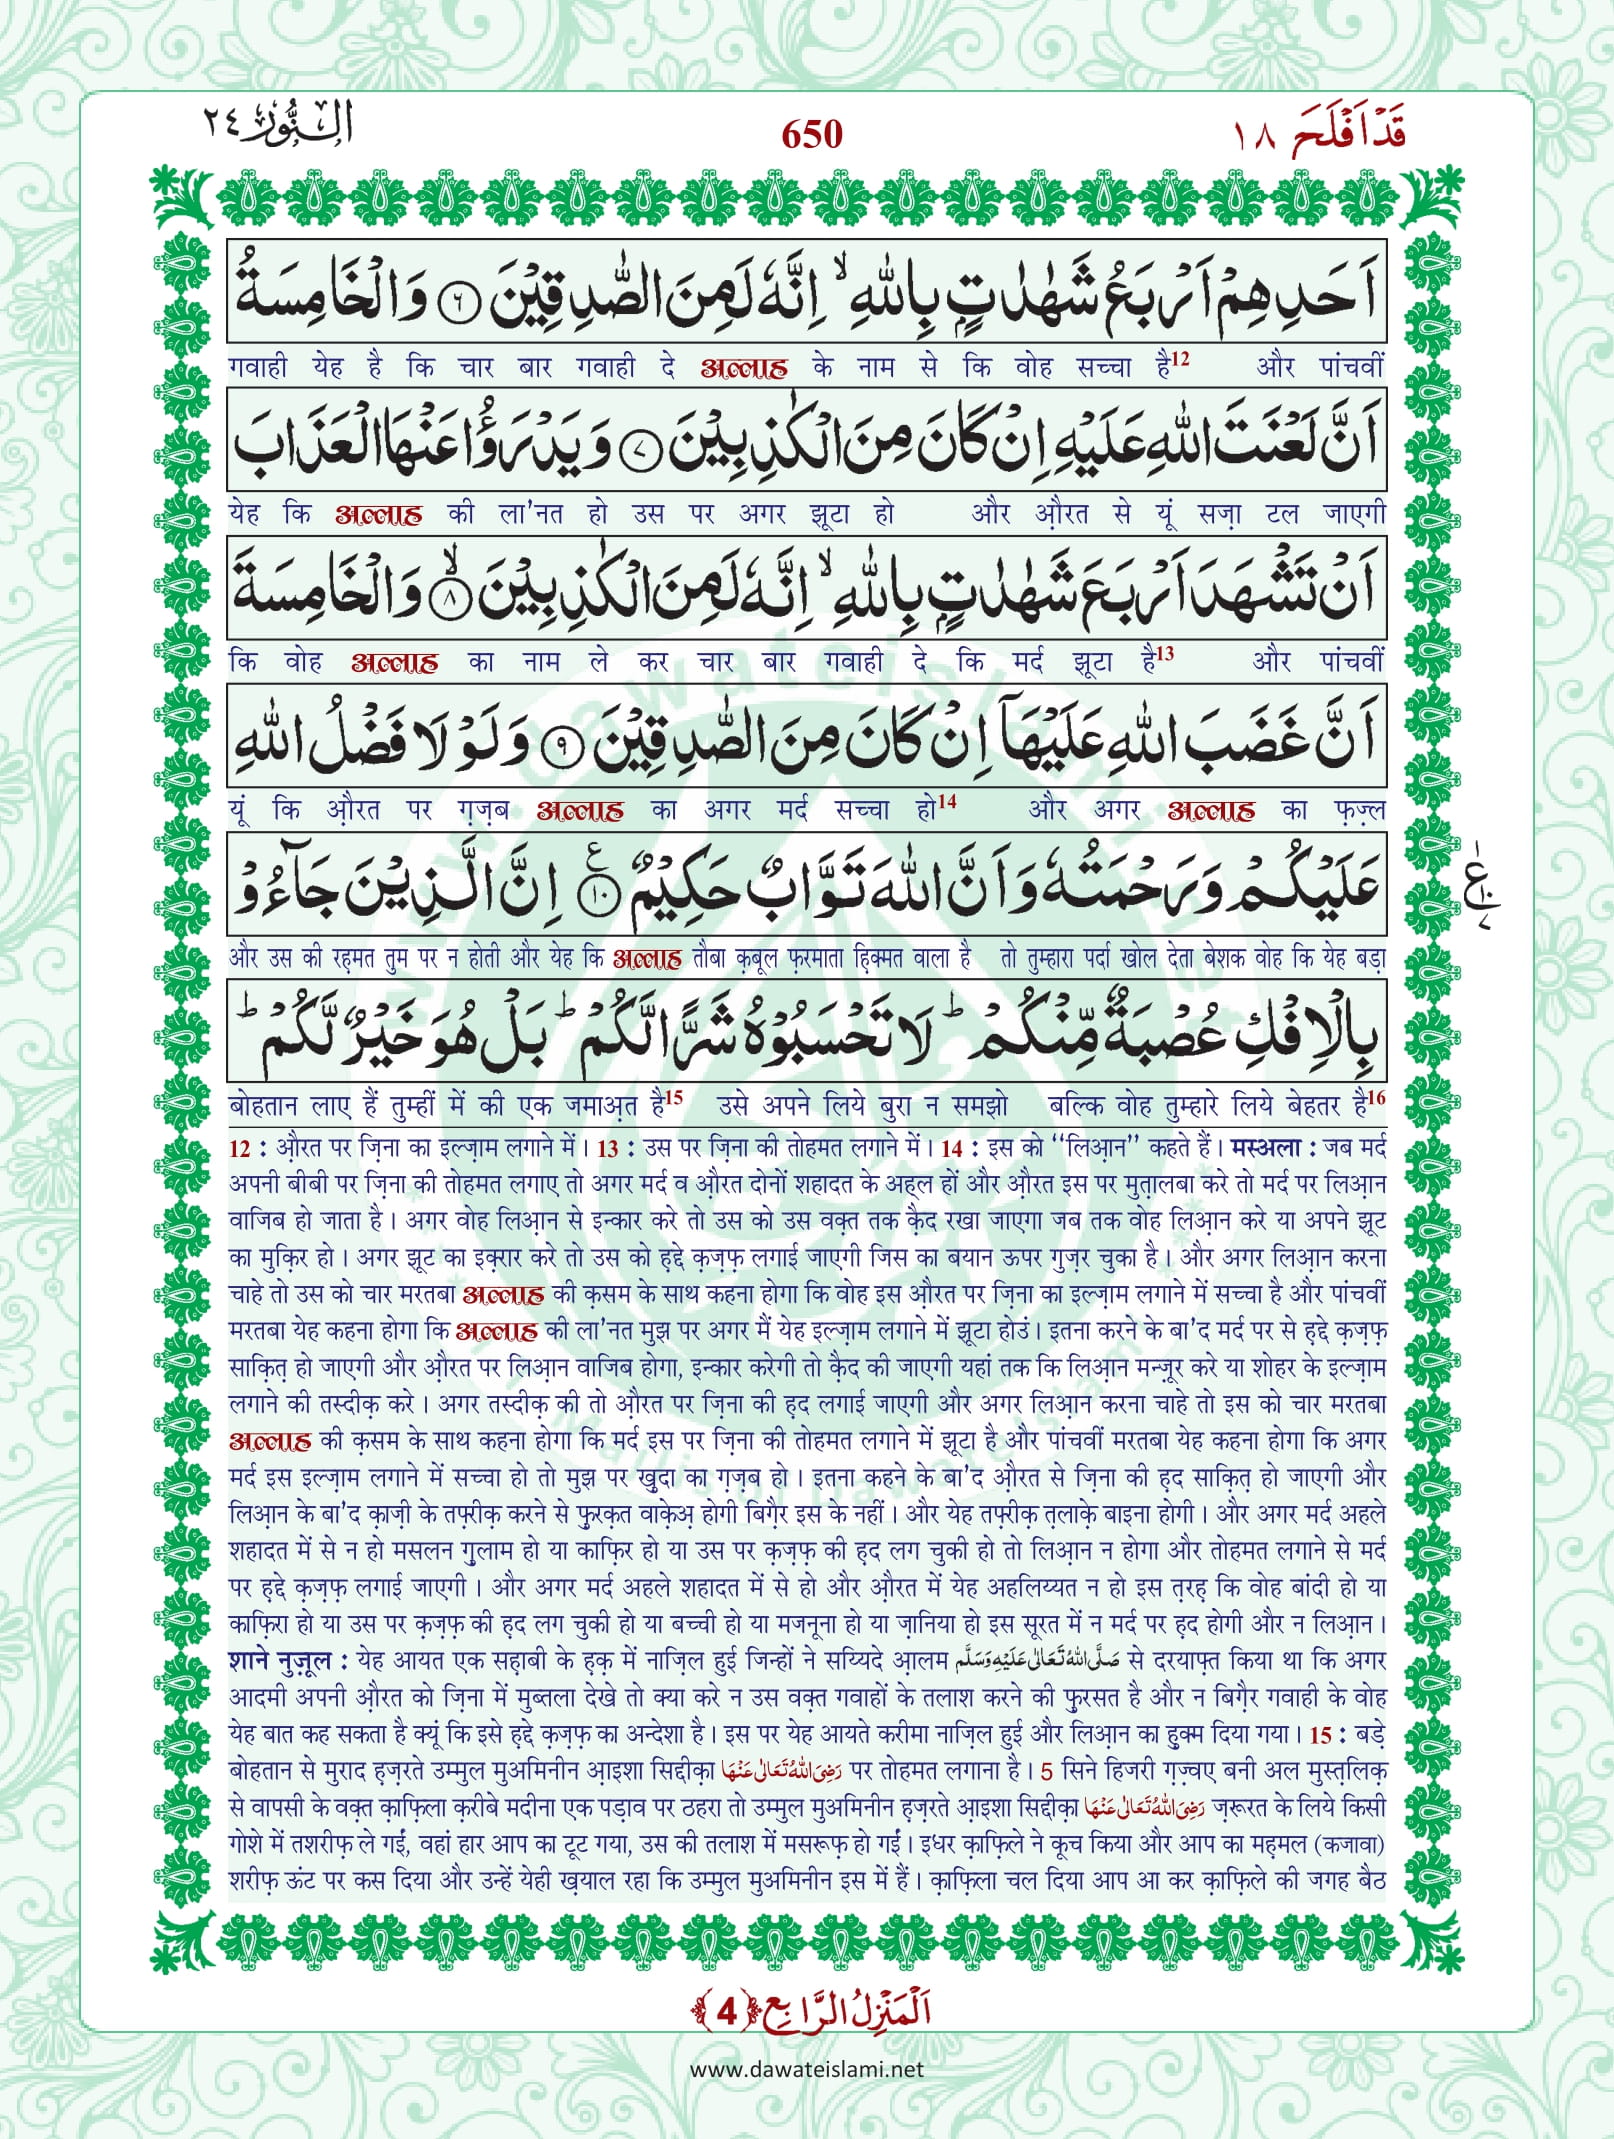 قَدْ اَفْلَحَ ١٨
650
اَلنُّوْر ٢٤
اَحَدِهِمْ اَرْبَعُ شَهٰدٰتٍۭ بِاللّٰهِ ۙ اِنَّهٗ لَمِنَ الصّٰدِقِیْنَ ﴿۶﴾ وَ الْخَامِسَةُ
गवाही येह है कि चार बार गवाही दे अल्लाह के नाम से कि वोह सच्चा है12 और पांचवीं
اَنَّ لَعْنَتَ اللّٰهِ عَلَیْهِ اِنْ كَانَ مِنَ الْكٰذِبِیْنَ ﴿۷﴾ وَ یَدْرَؤُا عَنْهَا الْعَذَابَ
येह कि अल्लाह की ला'नत हो उस पर अगर झूटा हो और औ़रत से यूं सज़ा टल जाएगी
اَنْ تَشْهَدَ اَرْبَعَ شَهٰدٰتٍۭ بِاللّٰهِ ۙ اِنَّهٗ لَمِنَ الْكٰذِبِیْنَ ﴿۸﴾ ۙ وَ الْخَامِسَةَ
कि वोह अल्लाह का नाम ले कर चार बार गवाही दे कि मर्द झूटा है13 और पांचवीं
اَنَّ غَضَبَ اللّٰهِ عَلَیْهَاۤ اِنْ كَانَ مِنَ الصّٰدِقِیْنَ ﴿۹﴾ وَ لَوْ لَا فَضْلُ اللّٰهِ
यूं कि औ़रत पर ग़ज़ब अल्लाह का अगर मर्द सच्चा हो14 और अगर अल्लाह का फ़ज़्ल
عَلَیْكُمْ وَ رَحْمَتُهٗ وَ اَنَّ اللّٰهَ تَوَّابٌ حَكِیْمٌ ﴿۱۰﴾ ع اِنَّ الَّذِیْنَ جَآءُوْ
और उस की रह़मत तुम पर न होती और येह कि अल्लाह तौबा क़बूल फ़रमाता ह़िक्मत वाला है तो तुम्हारा पर्दा खोल देता बेशक वोह कि येह बड़ा
بِالْاِفْكِ عُصْبَةٌ مِّنْكُمْ ؕ لَا تَحْسَبُوْهُ شَرًّا لَّكُمْ ؕ بَلْ هُوَ خَیْرٌ لَّكُمْ ؕ
बोहतान लाए हैं तुम्हीं में की एक जमाअ़त है15 उसे अपने लिये बुरा न समझो बल्कि वोह तुम्हारे लिये बेहतर है16
12 : औ़रत पर ज़िना का इल्ज़ाम लगाने में। 13 : उस पर ज़िना की तोहमत लगाने में। 14 : इस को ‘‘लिआ़न’’ कहते हैं। मस्अला : जब मर्द
अपनी बीबी पर ज़िना की तोहमत लगाए तो अगर मर्द व औ़रत दोनों शहादत के अह्ल हों और औ़रत इस पर मुत़ालबा करे तो मर्द पर लिआ़न
वाजिब हो जाता है। अगर वोह लिआ़न से इन्कार करे तो उस को उस वक़्त तक क़ैद रखा जाएगा जब तक वोह लिआ़न करे या अपने झूट
का मुक़िर हो। अगर झूट का इक़्रार करे तो उस को ह़द्दे क़ज़फ़ लगाई जाएगी जिस का बयान ऊपर गुज़र चुका है। और अगर लिआ़न करना
चाहे तो उस को चार मरतबा अल्लाह की क़सम के साथ कहना होगा कि वोह इस औ़रत पर ज़िना का इल्ज़ाम लगाने में सच्चा है और पांचवीं
मरतबा येह कहना होगा कि अल्लाह की ला'नत मुझ पर अगर मैं येह इल्ज़ाम लगाने में झूटा होउं। इतना करने के बा'द मर्द पर से ह़द्दे क़ज़फ़
साक़ित़ हो जाएगी और औ़रत पर लिआ़न वाजिब होगा, इन्कार करेगी तो क़ैद की जाएगी यहां तक कि लिआ़न मन्ज़ूर करे या शोहर के इल्ज़ाम
लगाने की तस्दीक़ करे। अगर तस्दीक़ की तो औ़रत पर ज़िना की ह़द लगाई जाएगी और अगर लिआ़न करना चाहे तो इस को चार मरतबा
अल्लाह की क़सम के साथ कहना होगा कि मर्द इस पर ज़िना की तोहमत लगाने में झूटा है और पांचवीं मरतबा येह कहना होगा कि अगर
मर्द इस इल्ज़ाम लगाने में सच्चा हो तो मुझ पर ख़ुदा का ग़ज़ब हो। इतना कहने के बा'द औ़रत से ज़िना की ह़द साक़ित़ हो जाएगी और
लिआ़न के बा'द क़ाज़ी के तफ़्रीक़ करने से फ़ुरक़त वाक़ेअ़ होगी बिग़ैर इस के नहीं। और येह तफ़्रीक़ त़लाक़े बाइना होगी। और अगर मर्द अहले
शहादत में से न हो मसलन ग़ुलाम हो या काफ़िर हो या उस पर क़ज़फ़ की ह़द लग चुकी हो तो लिआ़न न होगा और तोहमत लगाने से मर्द
पर ह़द्दे क़ज़फ़ लगाई जाएगी। और अगर मर्द अहले शहादत में से हो और औ़रत में येह अहलिय्यत न हो इस त़रह़ कि वोह बांदी हो या
काफ़िरा हो या उस पर क़ज़फ़ की ह़द लग चुकी हो या बच्ची हो या मजनूना हो या ज़ानिया हो इस सूरत में न मर्द पर ह़द होगी और न लिआ़न।
शाने नुज़ूल : येह आयत एक सह़ाबी के ह़क़ में नाज़िल हुई जिन्हों ने सय्यिदे आ़लम صَلَّى اللهُ تَعَالٰى عَلَيْهِ وَسَلَّم से दरयाफ़्त किया था कि अगर
आदमी अपनी औ़रत को ज़िना में मुब्तला देखे तो क्या करे न उस वक़्त गवाहों के तलाश करने की फ़ुरसत है और न बिग़ैर गवाही के वोह
येह बात कह सकता है क्यूं कि इसे ह़द्दे क़ज़फ़ का अन्देशा है। इस पर येह आयते करीमा नाज़िल हुई और लिआ़न का हुक्म दिया गया। 15 : बड़े
बोहतान से मुराद ह़ज़रते उम्मुल मुअमिनीन आ़इशा सिद्दीक़ा رَضِىَ اللهُ تَعَالٰى عَنْهَا पर तोहमत लगाना है। 5 सिने हिजरी ग़ज़्वए बनी अल मुस्त़लिक़
से वापसी के वक़्त क़ाफ़िला क़रीबे मदीना एक पड़ाव पर ठहरा तो उम्मुल मुअमिनीन ह़ज़रते आ़इशा सिद्दीक़ा رَضِىَ اللهُ تَعَالٰى عَنْهَا ज़रूरत के लिये किसी
गोशे में तशरीफ़ ले गईं, वहां हार आप का टूट गया, उस की तलाश में मसरूफ़ हो गईं। इधर क़ाफ़िले ने कूच किया और आप का मह़मल (कजावा)
शरीफ़ ऊंट पर कस दिया और उन्हें येही ख़याल रहा कि उम्मुल मुअमिनीन इस में हैं। क़ाफ़िला चल दिया आप आ कर क़ाफ़िले की जगह बैठ
اَلْمَنْزِلُ الرَّابِع ﴿4﴾
www.dawateislami.net